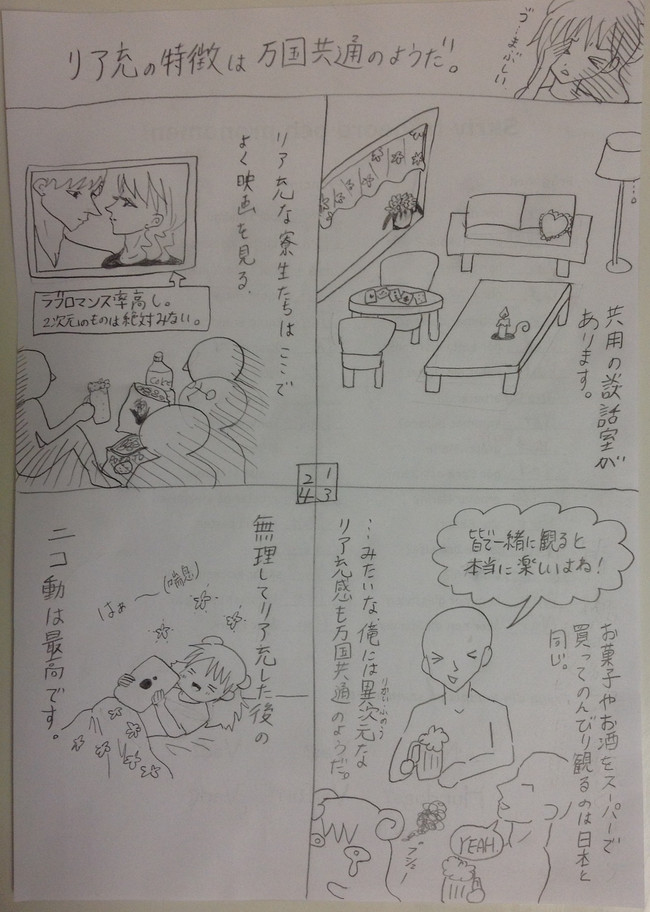 リア充の特徴は万国共通のようだ。
ゔ…まぶしい
共用の談話室が
あります。
リア充な寮生たちはここで
よく映画を見る
ラブロマンス率高し。
2次元のものは絶対みない。
Coke
2 1
4 3
皆で一緒に観ると
本当に楽しいはね！
お菓子やお酒をスーパーで
買ってのんびり観るのは日本と
同じ。
…みたいな俺には異次元な
りかいふのう
リア充感も万国共通のようだっ
ブシュー
YEAH
無理してリア充した後の
ニコ動は最高です。
はぁ〜(喘息)